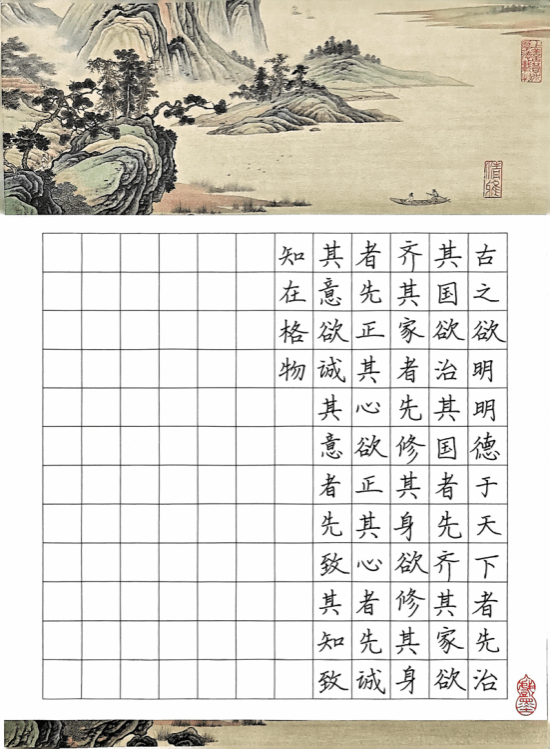 古之欲明明德于天下者先治
其国欲治其国者先齐其家欲
齐其家者先修其身欲修其身
者先正其心欲正其心者先诚
其意欲诚其意者先致其知致
知在格物
清雅